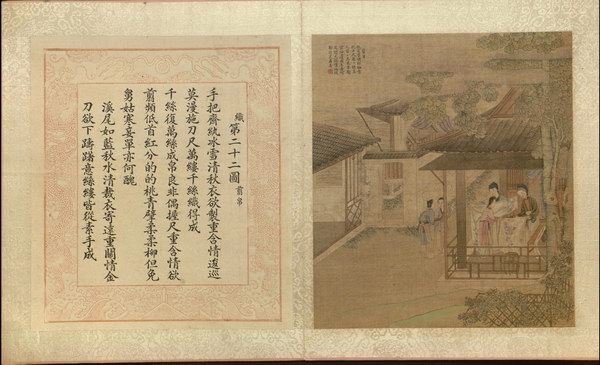 織第二十二圖 剪帛
手把齊紈冰雪清秋衣欲製重含情逡巡
莫漫施刀尺萬縷千絲織得成
千絲復萬絲成帛良非偶握尺重含情欲
剪頻低首紅分的的桃青擘柔柔柳但免
舅姑寒妾單亦何醜
溪尾如藍秋水清裁衣寄遠重關情金
刀欲下躊躇意絲縷皆從素手成